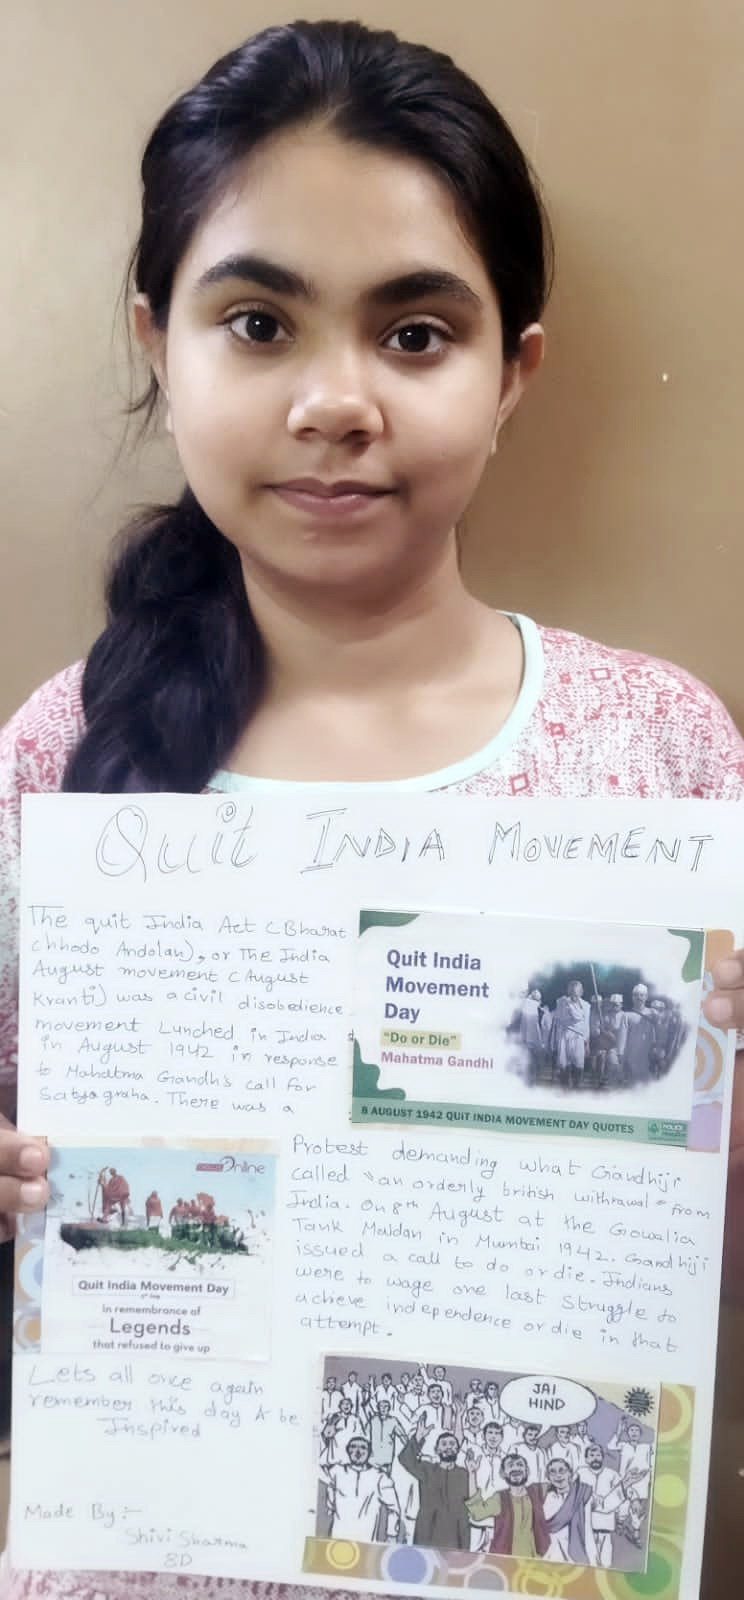 Quit INDIA MOVEMENT
The quit India Act (Bharat
chhodo Andolan), or The India
August movement (August
Kranti) was a civil disobedience
movement Lunched in India
in August 1942 in response
to Mahatma Gandhi's call for
Satyagraha. There was a
Quit India
Movement
Day
"Do or Die"
Mahatma Gandhi
8 AUGUST 1942 QUIT INDIA MOVEMENT DAY QUOTES
Protest demanding what Gandhiji
called "an orderly british withrawal" from
India. On 8th August at the Gowalia
Tank Maidan in Mumbai 1942. Gandhiji
issued a call to do or die. Indians
were to wage one last Struggle to
achieve independence or die in that
attempt.
Online
Quit India Movement Day
in remembrance of
Legends
that refused to give up
Lets all once again
remember this day & be
Inspired
JAI
HIND
Made By :-
Shivi Sharma
8D